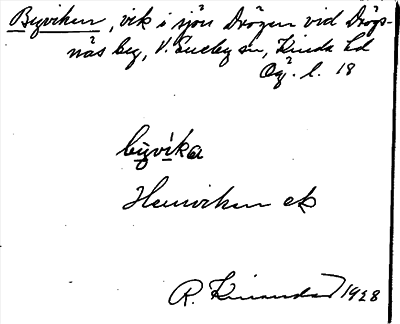 Byviken, vik i sjön Drögen vid Drögs-
näs by, V. Eneby sn, Kinda hd
Ög. l. 18
byvika
Hemviken ek
R. 1928